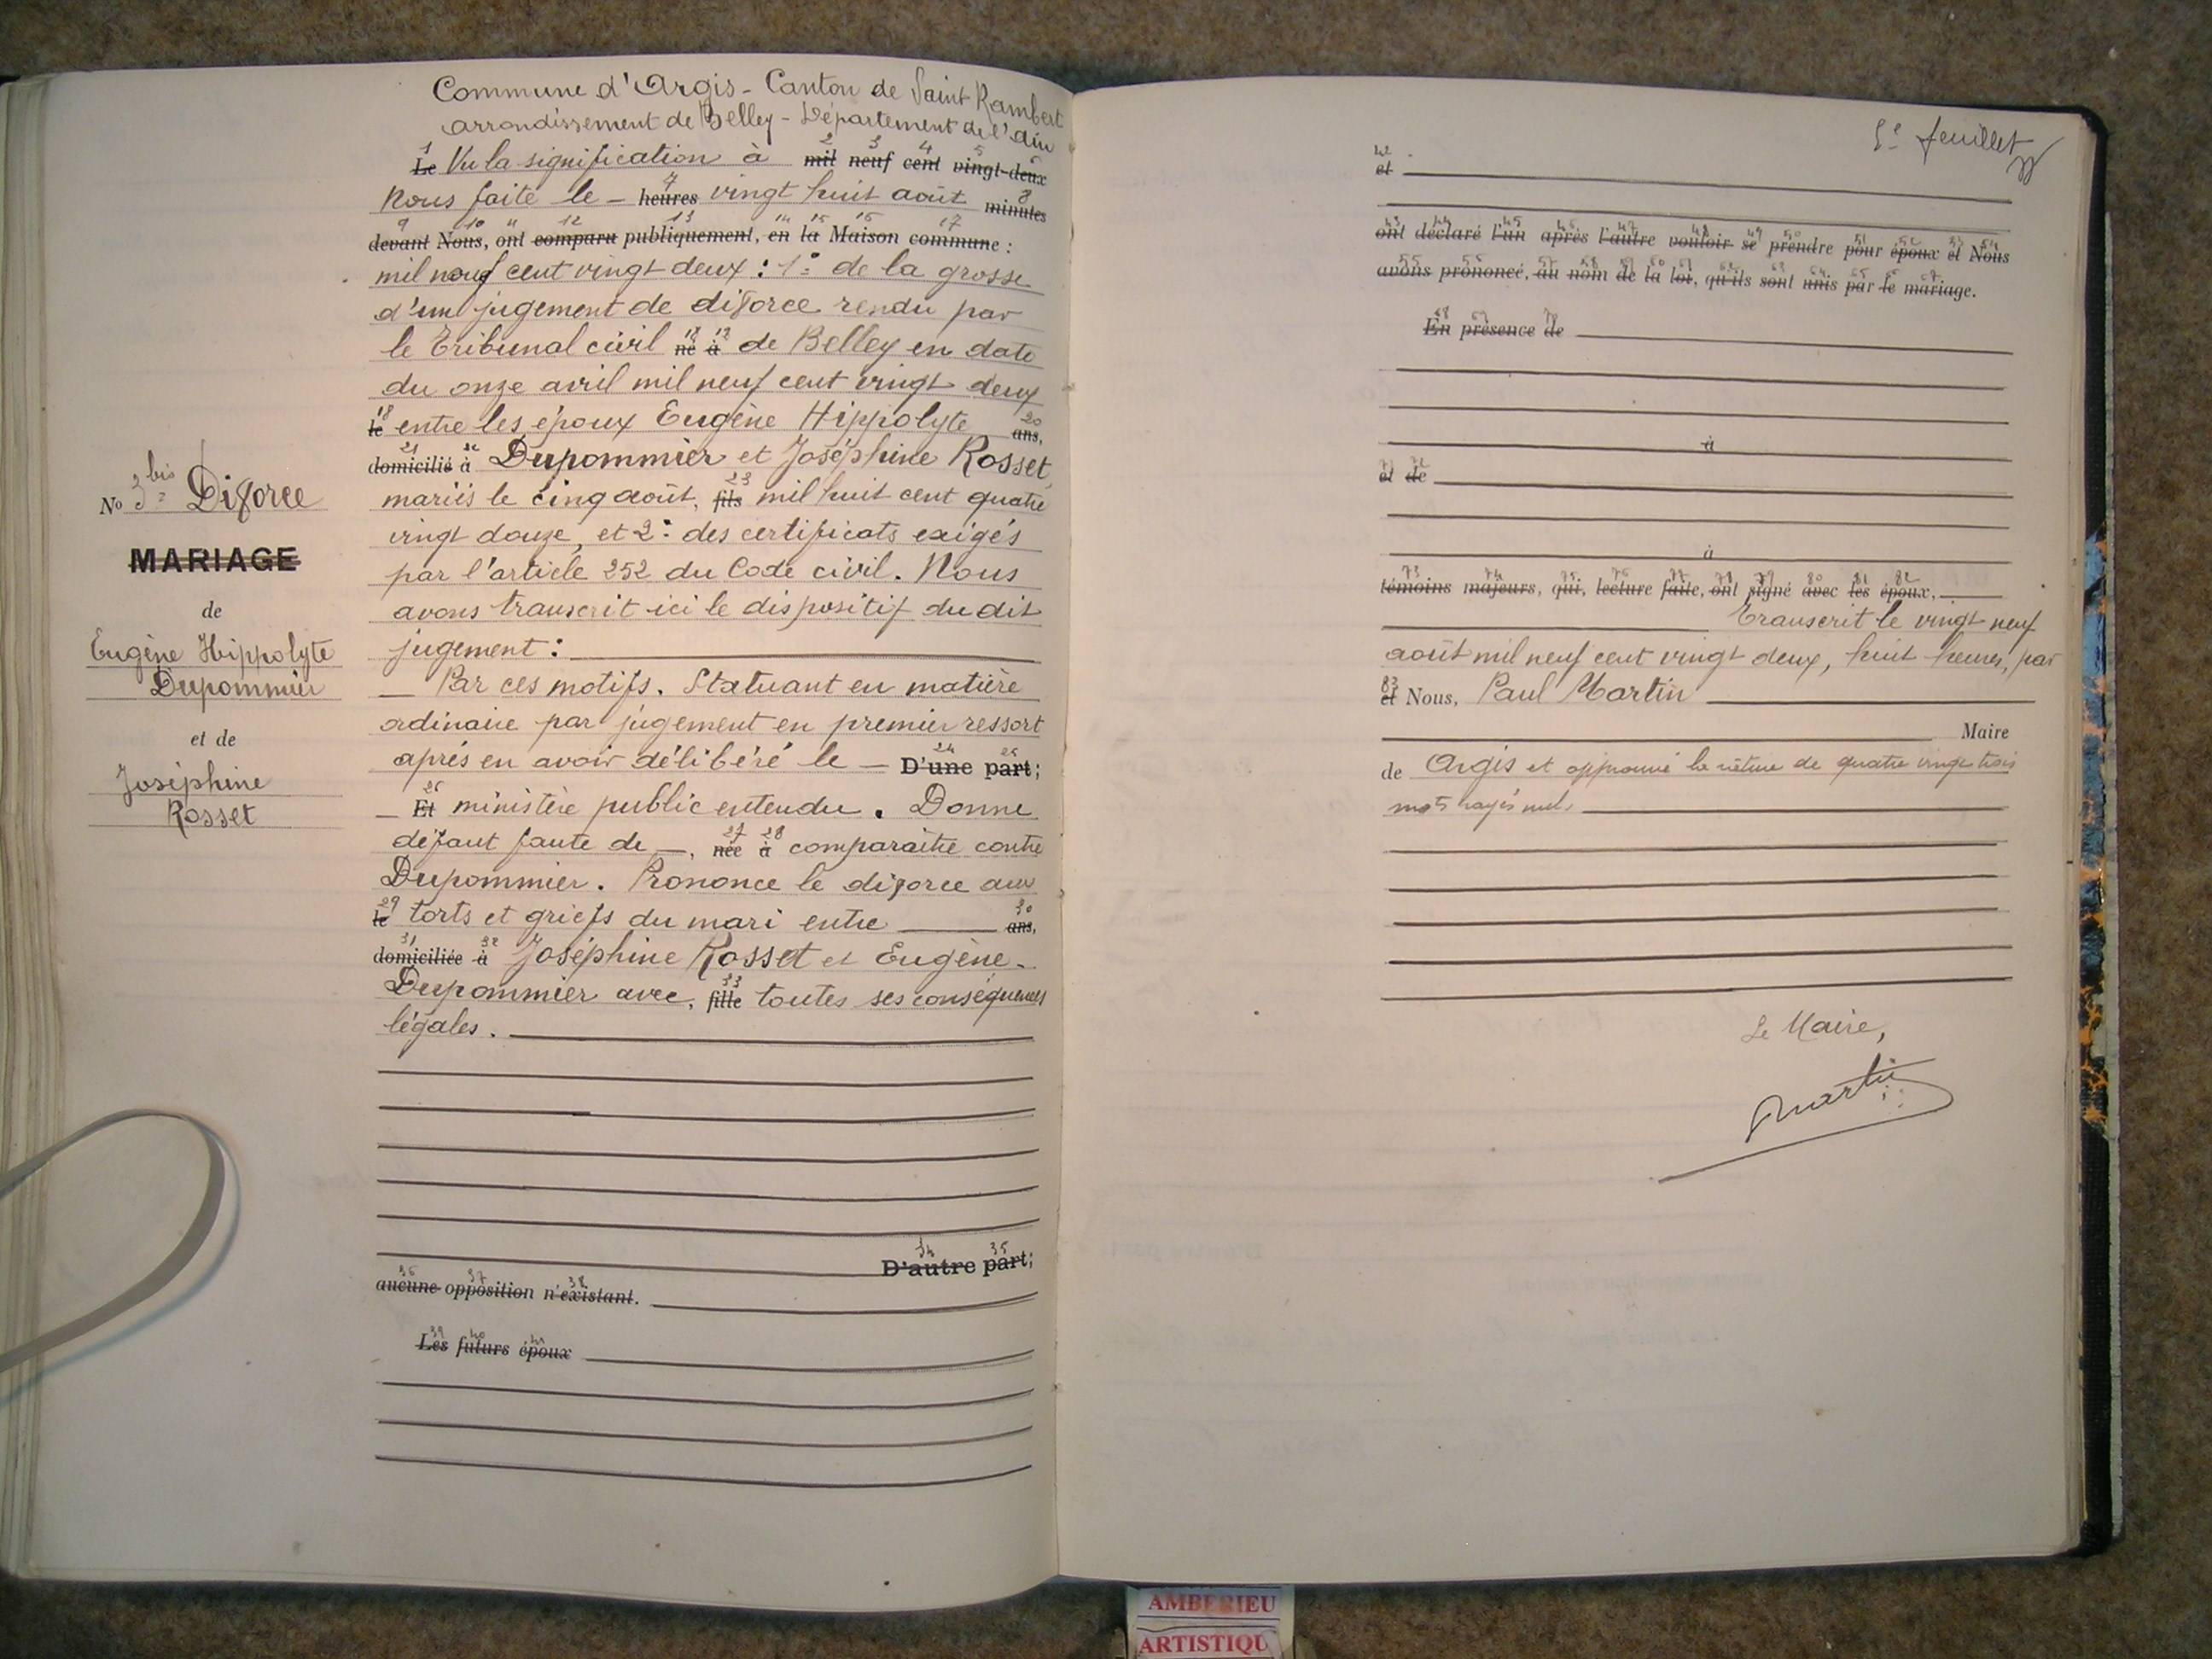 Commune d'Argis - Canton de Saint Rambert
arrondissement de Belley - Département de l'Ain
1 2 3 4 5 6
Le Vu la signification à mil neuf cent vingt-deux
Nous faite le - heures vingt huit août minutes
7 8
9 10 11 12 13 14 15 16 17
devant Nous, ont comparu publiquement, en la Maison commune :
mil neuf cent vingt deux : 1° de la grosse
d'un jugement de divorce rendu par
le Tribunal civil né à de Belley en date
du onze avril mil neuf cent vingt deux
le entre les époux Eugène Hippolyte ans,
domicilié à Dupommier et Joséphine Rosset,
mariés le cinq août, fils mil huit cent quatre
vingt douze, et 2° des certificats exigés
par l'article 252 du Code civil. Nous
avons transcrit ici le dispositif du dit
jugement :
Par ces motifs. Statuant en matière
ordinaire par jugement en premier ressort
après en avoir délibéré le - D'une part;
Et ministère public entendu. Donne
défaut faute de -, née à comparaître contre
Dupommier. Prononce le divorce aux
le torts et griefs du mari entre ans,
domiciliée à Joséphine Rosset et Eugène
Dupommier avec, fille toutes ses conséquences
légales.
D'autre part;
aucune opposition n'existant.
Les futurs époux
No 3bis Divorce
MARIAGE
de
Eugène Hippolyte
Dupommier
et de
Joséphine
Rosset
5e feuillet
et
ont déclaré l'un après l'autre vouloir se prendre pour époux et Nous
avons prononcé, au nom de la loi, qu'ils sont unis par le mariage.
En présence de
à
et de
à
témoins majeurs, qui, lecture faite, ont signé avec les époux,
Transcrit le vingt neuf
août mil neuf cent vingt deux, huit heures, par
et Nous, Paul Martin
Maire
de Argis et approuvé la rature de quatre vingt trois
mots rayés nuls
Le Maire,
Martin
AMBERIEU
ARTISTIQU